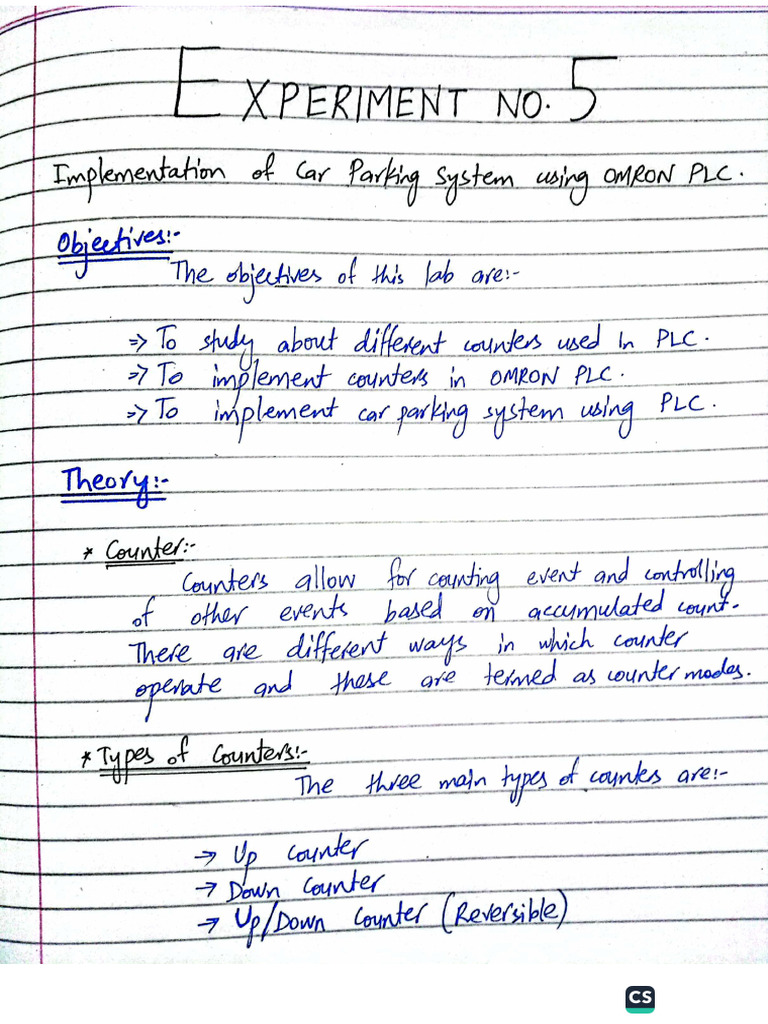 EXPERIMENT NO. 5
Implementation of Car Parking System using OMRON PLC.
Objectives:-
The objectives of this lab are:-
=> To study about different counters used in PLC.
=> To implement counters in OMRON PLC.
=> To implement car parking system using PLC.
Theory:-
* Counter:-
Counters allow for counting event and controlling
of other events based on accumulated count.
There are different ways in which counter
operate and these are termed as counter modes.
* Types of Counters:-
The three main types of countes are:-
→ Up counter
→ Down counter
→ Up/Down counter (Reversible)
CS